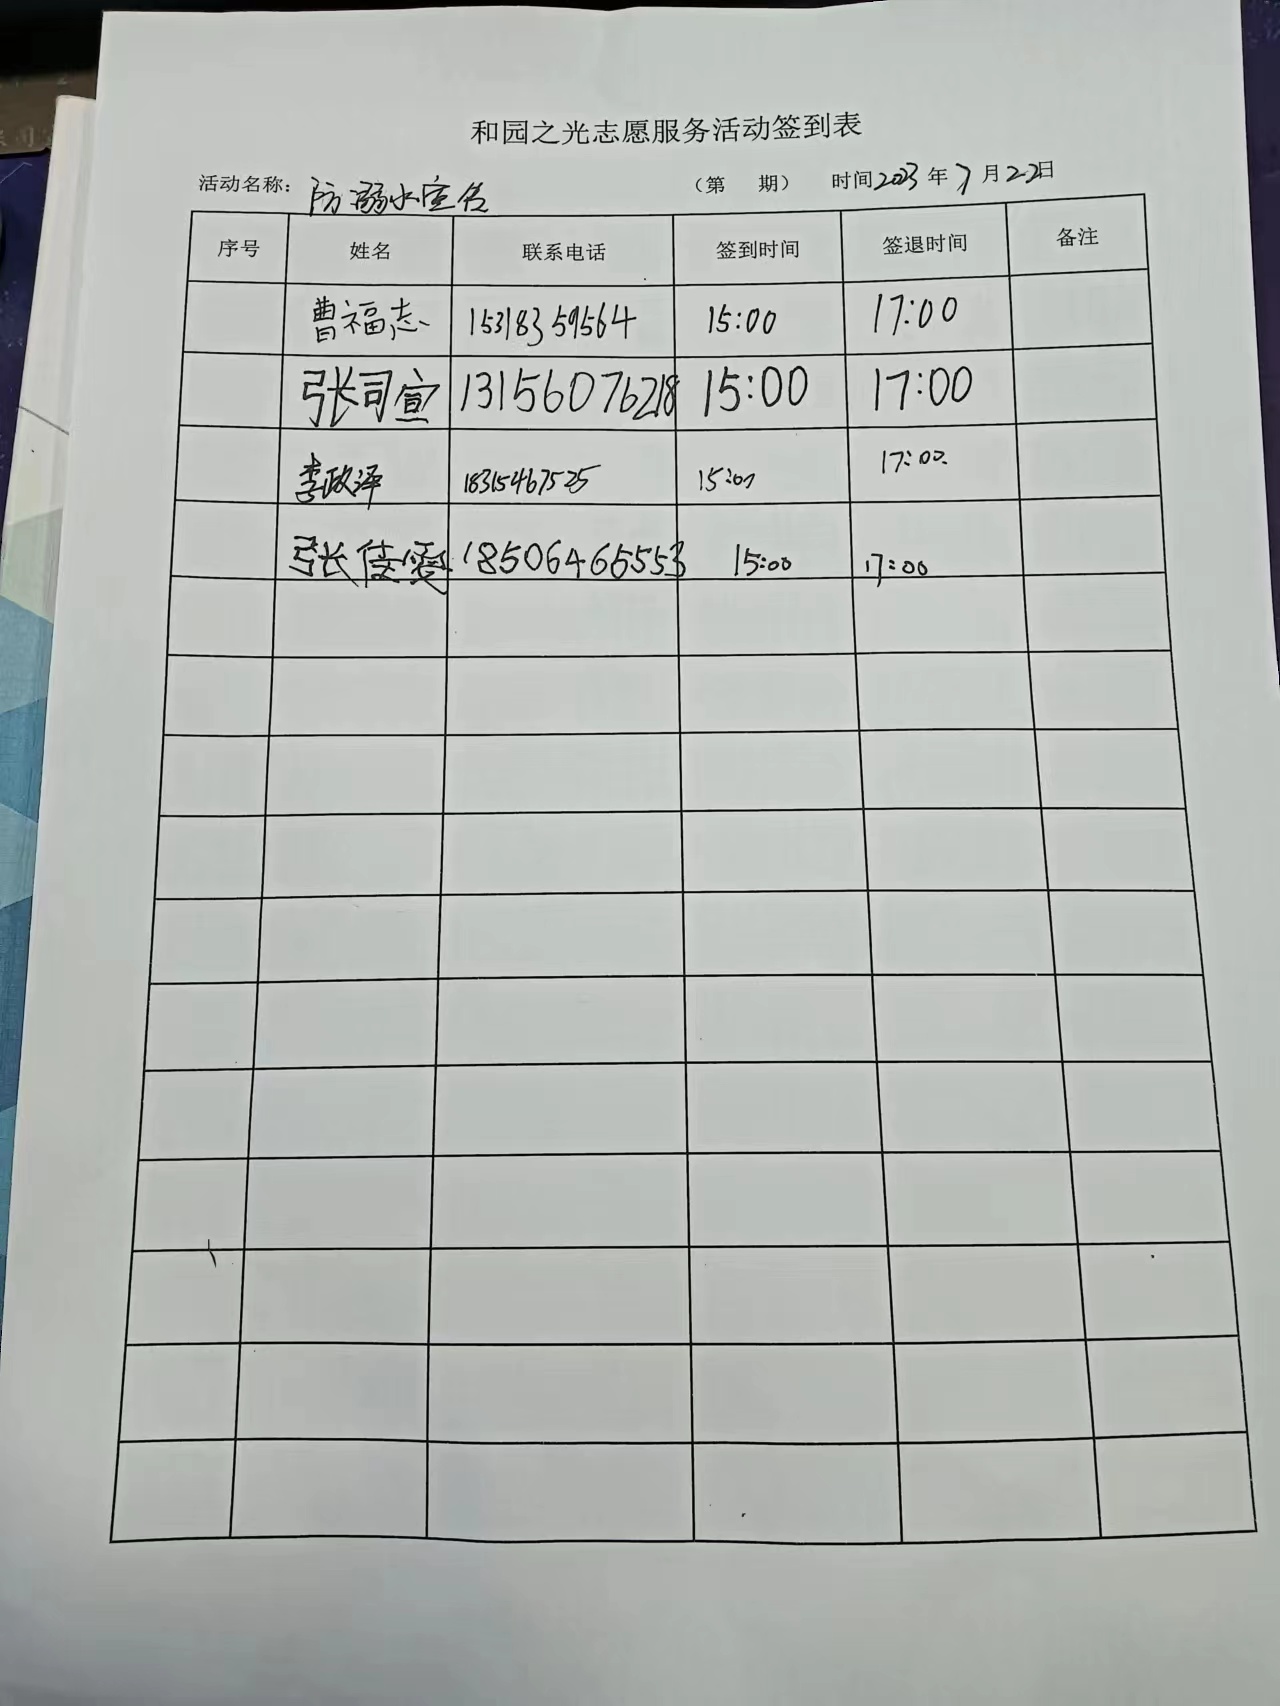 和园之光志愿服务活动签到表
活动名称：防溺水宣传 （第 期） 时间2023年7月22日
序号 姓名 联系电话 签到时间 签退时间 备注
曹福志 15318359564 15:00 17:00
张司宣 13156076218 15:00 17:00
李政泽 18315467525 15:00 17:00
张佳雯 18506465553 15:00 17:00